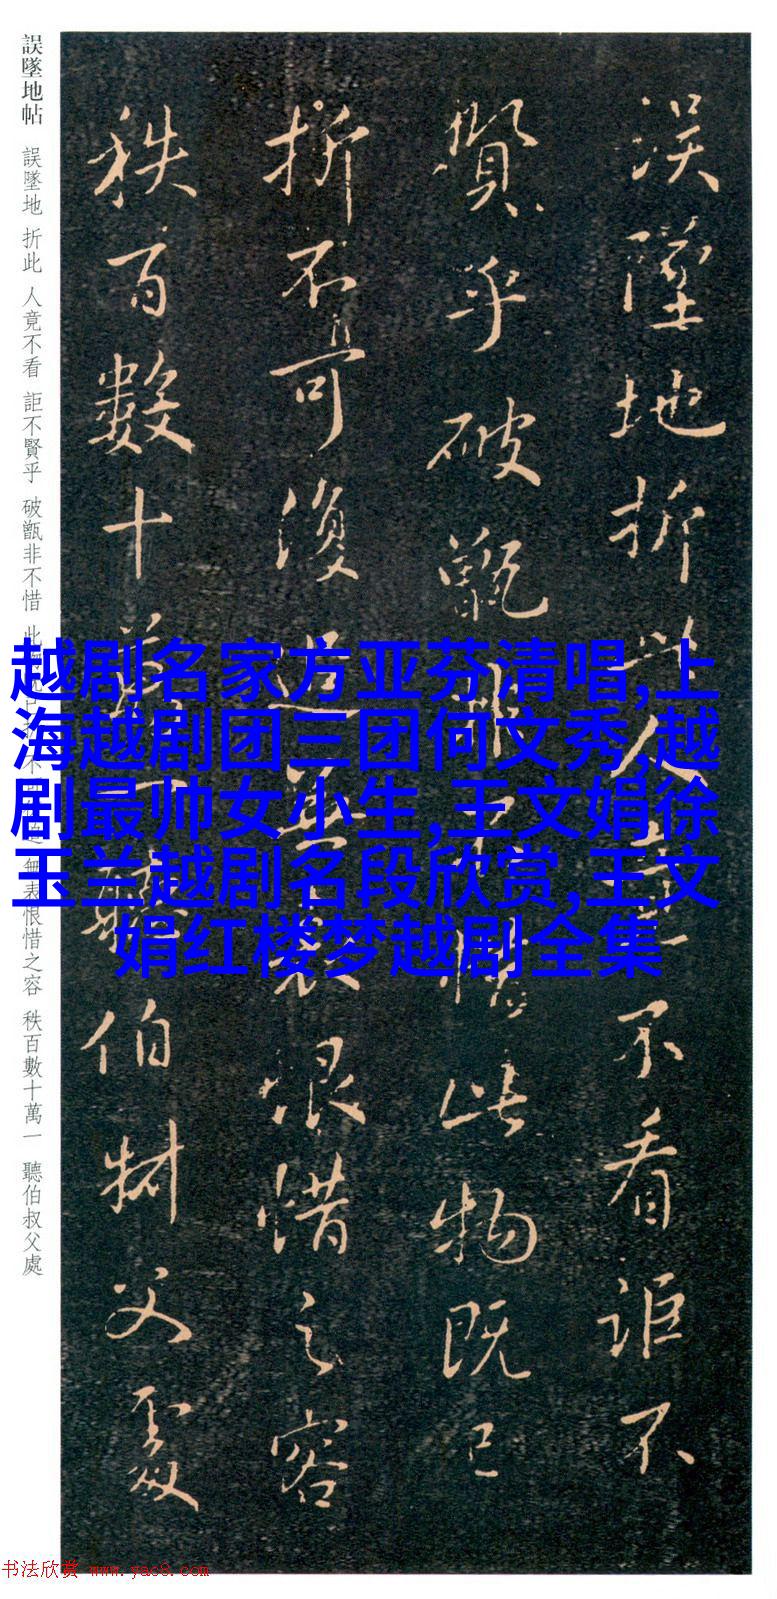 越剧名家方亚芬清唱,上
海越剧团三团何文秀,越
剧最帅女小生,王文娟徐
玉兰越剧名段欣赏,王文
娟红楼梦越剧全集
誤墜地折此人不看詎不
賢乎破甑非惜此物既已
折不可復追無表恨惜之容
秩百數十萬一聽伯叔父處
誤墜地帖 誤墜地 折此 人竟不看 詎不賢乎 破甑非不惜 此 不 無表恨惜之容 秩百數十萬一 聽伯叔父處
书法欣赏 www.yac8.com